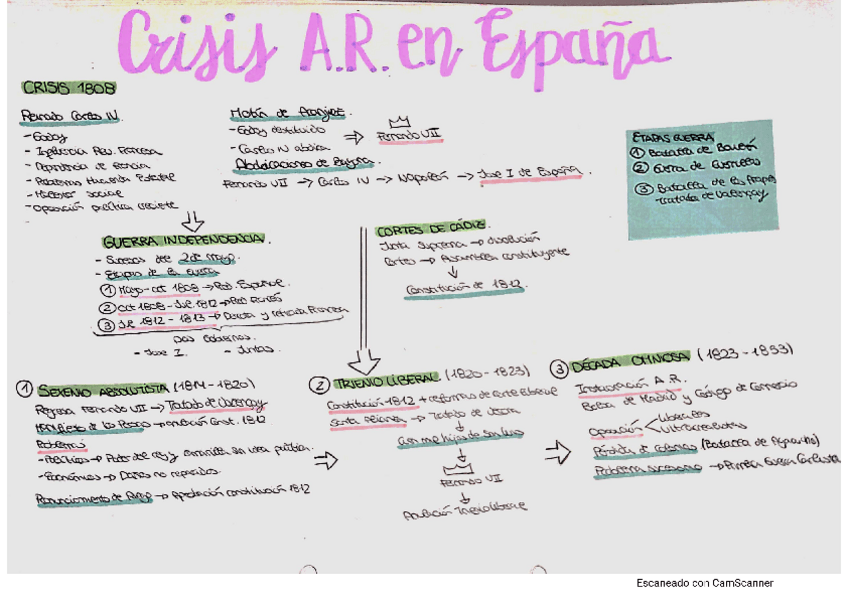 Crisis A.R. en España
CRISIS 1808
Reinado Carlos IV.
- Godoy
- Influencia Rev. Francesa
- Dependencia de Francia
- Problemas Hacienda Estatal
- Malestar social
- Oposición política creciente
Motín de Aranjuez.
- Godoy destituido
- Carlos IV abdica
Fernando VII
Abdicaciones de Bayona.
Fernando VII → Carlos IV → Napoleón → José I de España.
ETAPAS GUERRA
① Batalla de Bailén
② Guerra de Guerrillas
③ Batalla de los Arapiles
Tratado de Valençay
GUERRA INDEPENDENCIA.
- Sucesos del 2 de Mayo.
- Etapas de la Guerra
① Mayo-oct 1808 →
② Oct 1808 - Jul. 1812 →
③ Jul 1812 - 1813 → Derrota y retirada Francesa
Dos Gobiernos.
- José I. - Juntas.
CORTES DE CÁDIZ.
Junta Suprema → disolución
Cortes → Asamblea constituyente
Constitución de 1812.
① SEXENIO ABSOLUTISTA (1814-1820)
Regresa Fernando VII → Tratado de Valençay
Manifiesto de los Persas → anulación Const. 1812
Problemas
- Políticos → Poder del rey y
- Económicos → Daños no reparados.
Pronunciamiento de Riego → Aprobación constitución 1812
② TRIENIO LIBERAL (1820-1823)
Constitución 1812 + reformas de corte liberal
Santa Alianza → Tratado de Verona
Cien mil hijos de San Luis
Fernando VII
Abolición Trienio liberal
③ DÉCADA OMINOSA (1823-1833)
Instauración A.R.
Bolsa de Madrid y Código de Comercio
Oposición
Liberales
Ultrarrealistas
Pérdida de Colonias (Batalla de Ayacucho)
Problema sucesorio → Primera Guerra Carlista
Escaneado con CamScanner